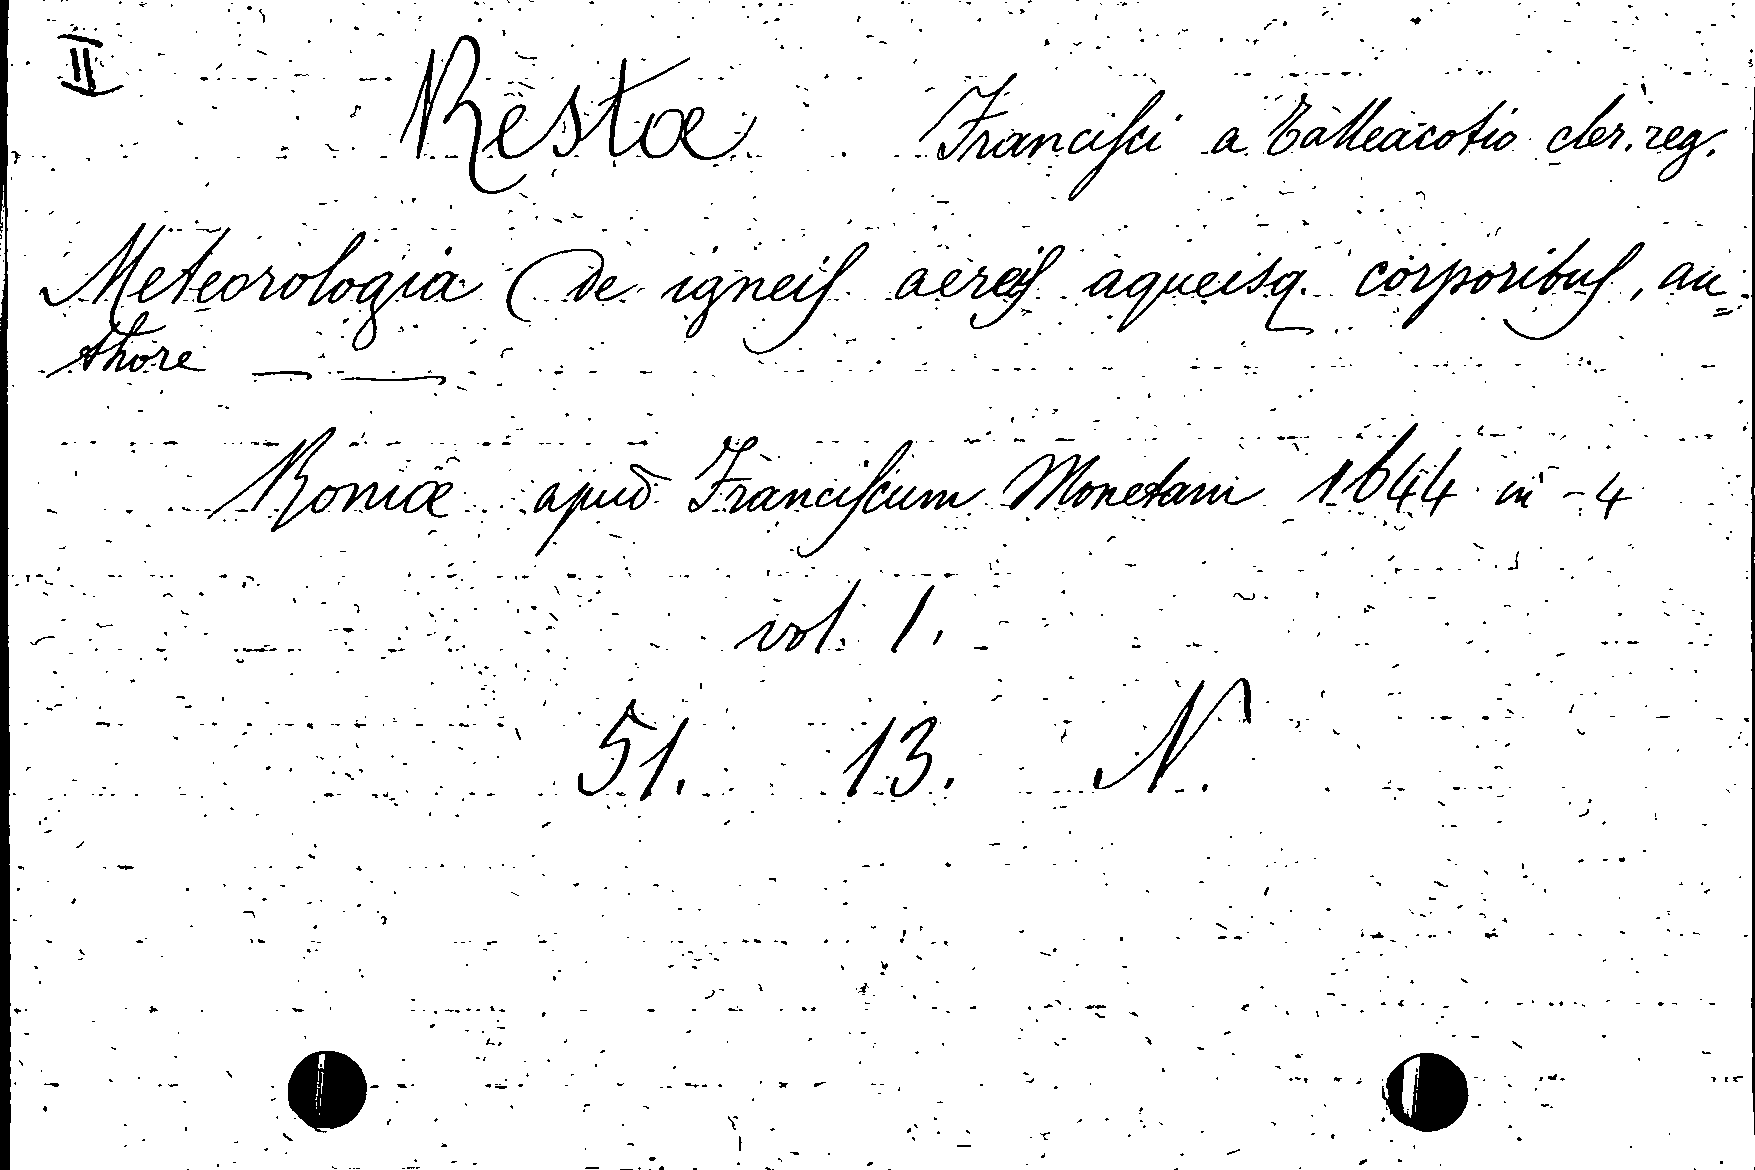 II
Restæ Francisci a Talleacotio cler. reg.
Meteorologia (de igneis aereis aqueisq. corporibus, au=
thore —— ——
Romæ apud Franciscum Monetam 1644 in - 4
vol. 1.
51. 13. N.